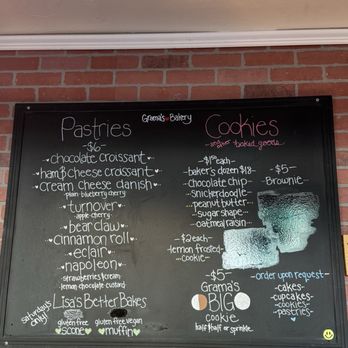 Grama's Bakery
Pastries
-$6-
chocolate croissant
ham & cheese croissant
cream cheese danish
plain blueberry cherry
turnover
apple cherry
bear claw
cinnamon roll
eclair
napoleon
strawberries & cream
lemon chocolate custard
Lisa's Better Bakes
Saturdays only!
gluten free
scone
gluten free vegan
muffin
Cookies
and other baked goods
-$1 each-
baker's dozen $18
chocolate chip
snickerdoodle
peanut butter
sugar shape
oatmeal raisin
-$2 each-
lemon frosted
cookie
-$5-
Grama's
BIG
cookie
half/half or sprinkle
-$5-
Brownie
order upon request
-cakes-
-cupcakes-
-cookies-
-pastries-